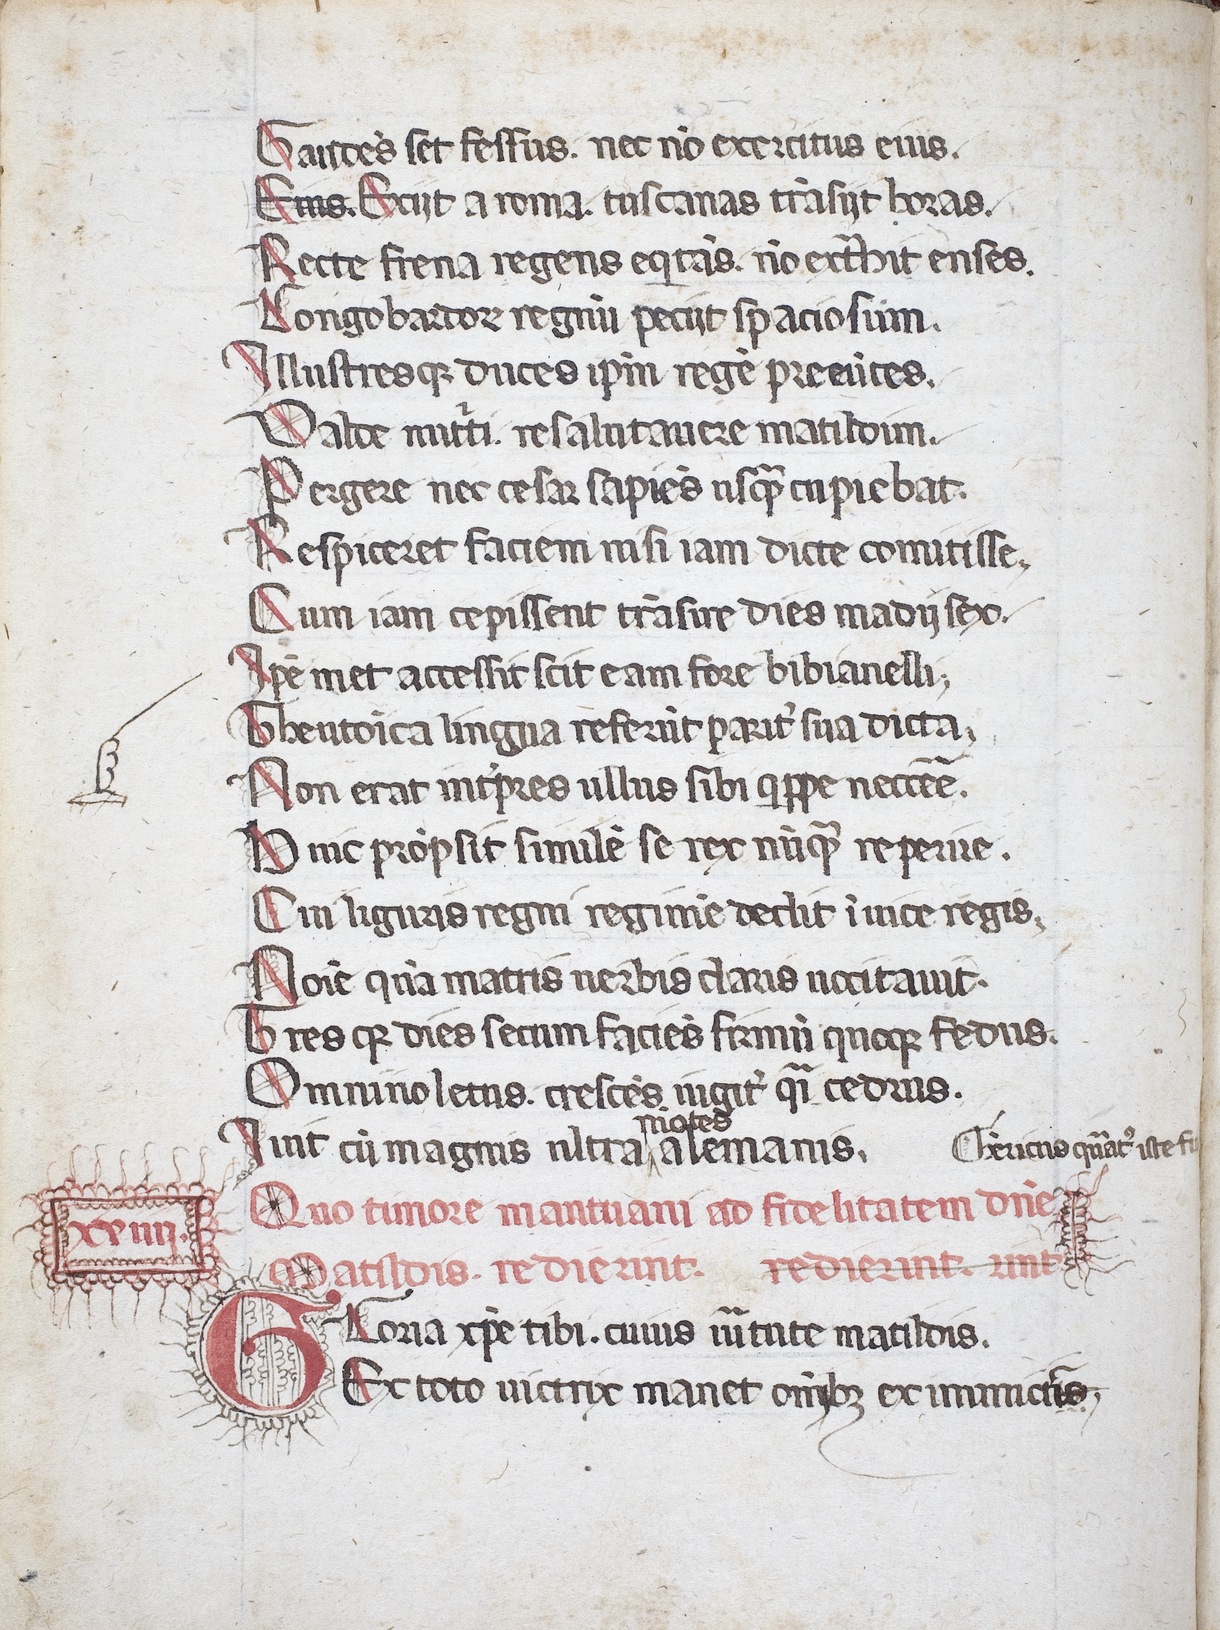 Gaudēs set fessus. nec nō exercitus eius.
Eius. Exijt a roma. tuscanas trāsijt horas.
Recte frena regens eqitās. nō extͣhit enses.
Longobardoꝝ regnū pecijt spaciosum.
Illustresqꝫ duces ipm̄ regē preeūtes.
Valde mirͣti. resalutauere matildim.
Pergere nec cesar sapiēs usqͣ cupiebat.
Respiceret faciem nisi iam dicte comitisse,
Cum iam cepissent trāsire dies madij sex.
Ipē met accessit scit eam fore bibianelli,
Theutoīca lingua referūt parit᾽ sua dicta,
Non erat int᾽pres ullus sibi qippe necc̄ē.
Huic prop̄sit similē se rex nūqͣ reperire.
Cui liguris regni regimē dedit ī uice regis,
Noīe qm̄ matris uerbis claris uocitauit.
Tres qꝫ dies secum faciēs firmū quoqꝫ fedus.
Omnino letus. crescēs iugit᾽ qͣi cedrus.
mōtes
Iuit cū magnis ultra alemanis.
hēricus qͣrt᾽ iste fu
xviiii.
Quo timore mantuani ad fidelitatem dn̄e
Matildis. redierunt. redierunt. runt
GLoria xp̄e tibi. cuius uͥtute matildis.
Ex toto uictrix manet om̄ibꝫ ex inimicis,